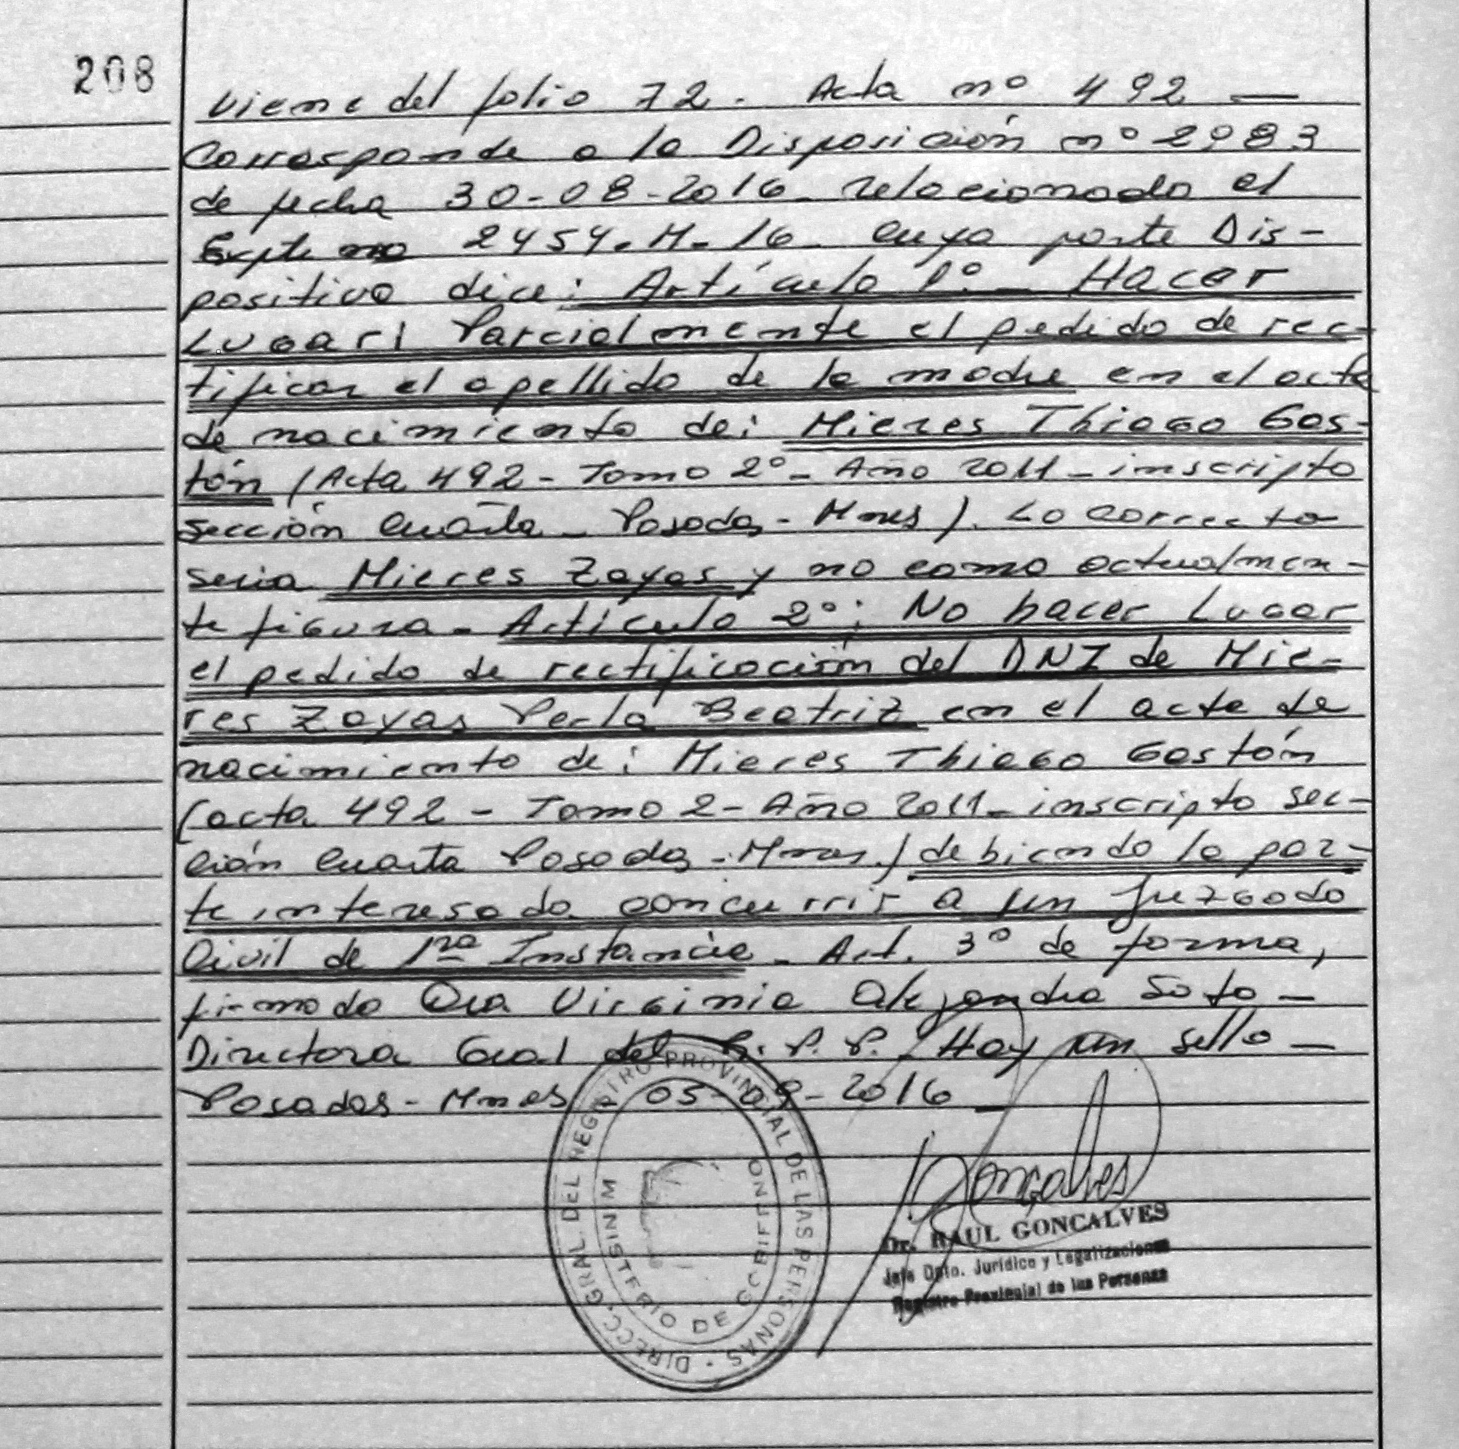 208
Viene del folio 72. Acta nº 492 —
Corresponde a la Disposición nº 2983
de fecha 30-08-2016 relacionado al
Expte no 2454-M-16 cuya parte Dis-
positiva dice: Artículo 1º - Hacer
Lugar Parcialmente el pedido de rec-
tificar el apellido de la madre en el acta
de nacimiento de: Mieres Thiago Gas-
tón (Acta 492 - Tomo 2º - Año 2011 - inscripto
sección Cuarta - Posadas - Mnes). Lo correcto
seria Mieres Zayas y no como actualmen-
te figura - Artículo 2º: No hacer Lugar
el pedido de rectificación del DNI de Mie-
res Zayas Perla Beatriz en el acta de
nacimiento de: Mieres Thiago Gastón
(acta 492 - Tomo 2 - Año 2011 - inscripto sec-
ción Cuarta Posadas - Mnes.) debiendo la par-
te interesada concurrir a un Juzgado
Civil de 1ra Instancia - Art. 3º de forma,
firmado Dra Virginia Alejandra Soto -
Directora Gral del R. P. P. / Hay un sello -
Posadas - Mnes 05-09-2016
DIRECC. GRAL. DEL REGISTRO PROVINCIAL DE LAS PERSONAS
MINISTERIO DE GOBIERNO
Goncalves
Dr. RAUL GONCALVES
Jefe Dpto. Jurídico y Legalizaciones
Registro Provincial de las Personas